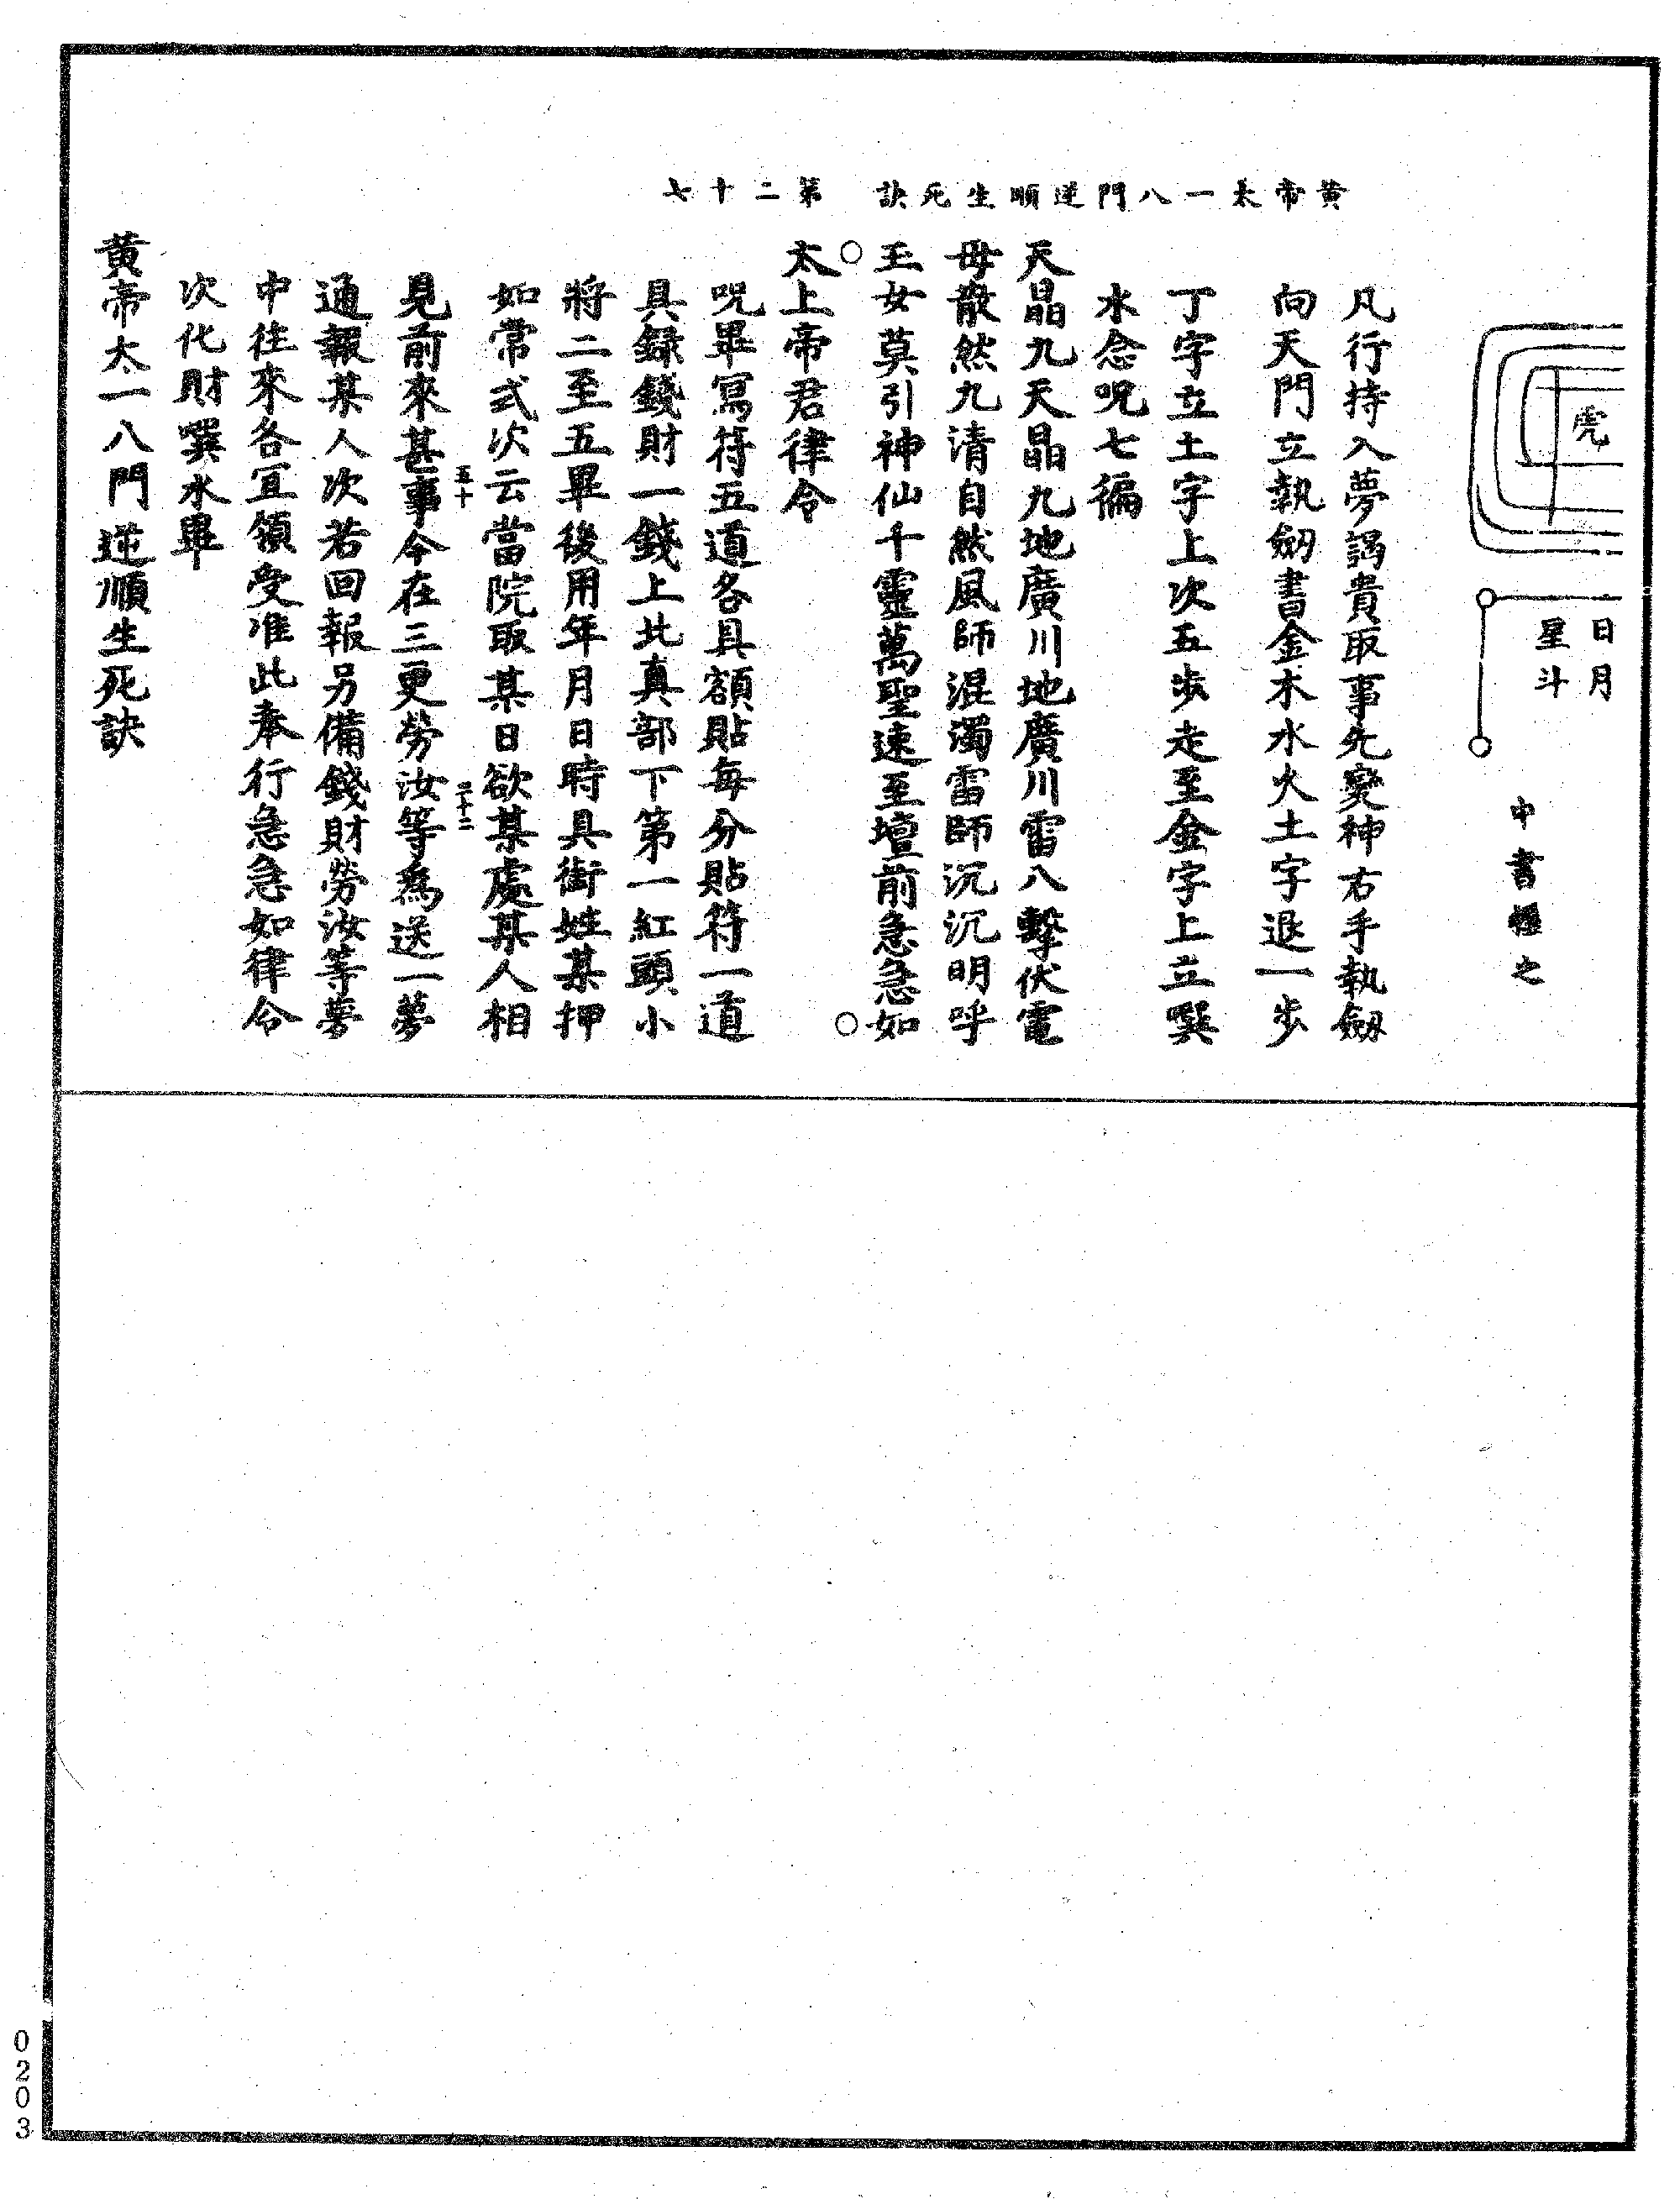 黃帝太一八門逆順生死訣　第二十七
虎
日月
星斗
中書　之
凡行持入夢謁貴取事先變神右手執劒
向天門立執劒書金木水火土字退一步
丁字立土字上次五步走至金字上立噀
水念呪七徧
天晶九天晶九地廣川地廣川雷八擊伏電
母散然九清自然風師混濁雷師沉沉明呼
玉女莫引神仙千靈萬聖速至壇前急急如
太上帝君律令
呪畢寫符五道各具額貼每分貼符一道
具錄錢財一錢上北真部下第一紅頭小
將二至五畢後用年月日時具銜姓某押
如常式次云當院取某日欲某處某人相
五十
三十二
見前來甚事今在三更勞汝等爲送一夢
通報某人次若回報另備錢財勞汝等夢
中往來各宜領受准此奉行急急如律令
次化財噀水畢
黃帝太一八門逆順生死訣
0203